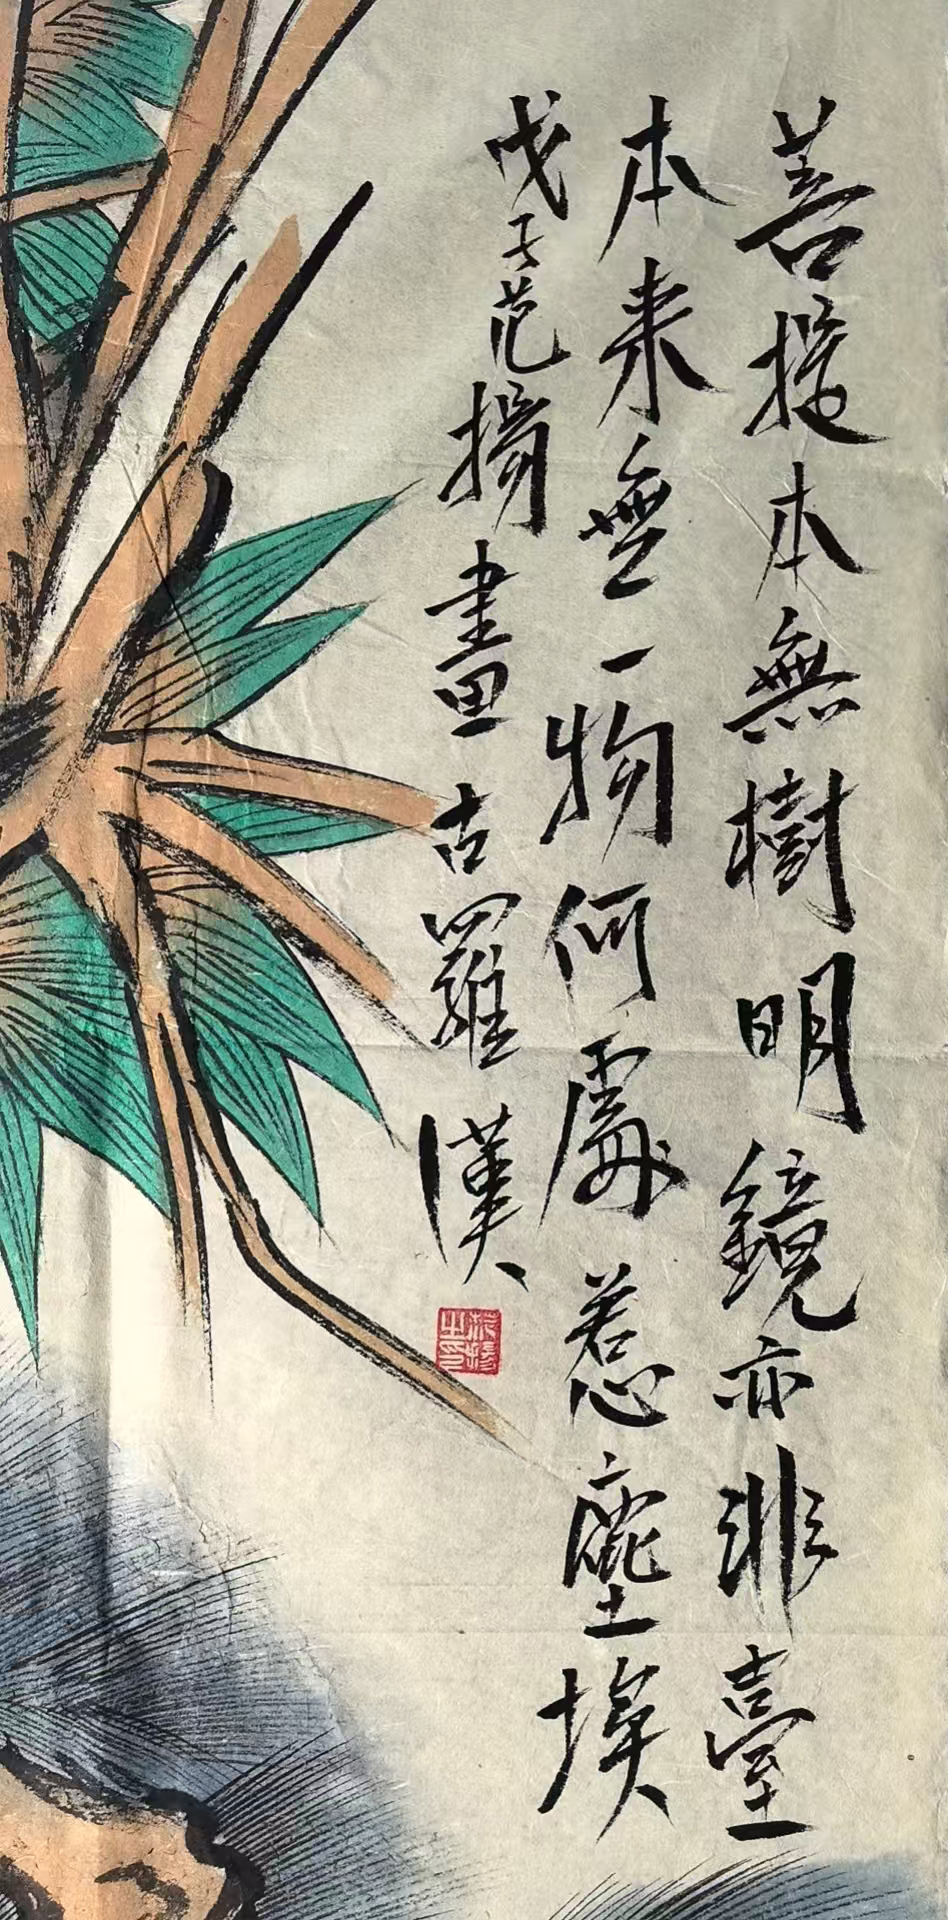 菩提本無樹明鏡亦非臺
本来無一物何處惹塵埃
戊子范揚畫古羅漢
范揚之印